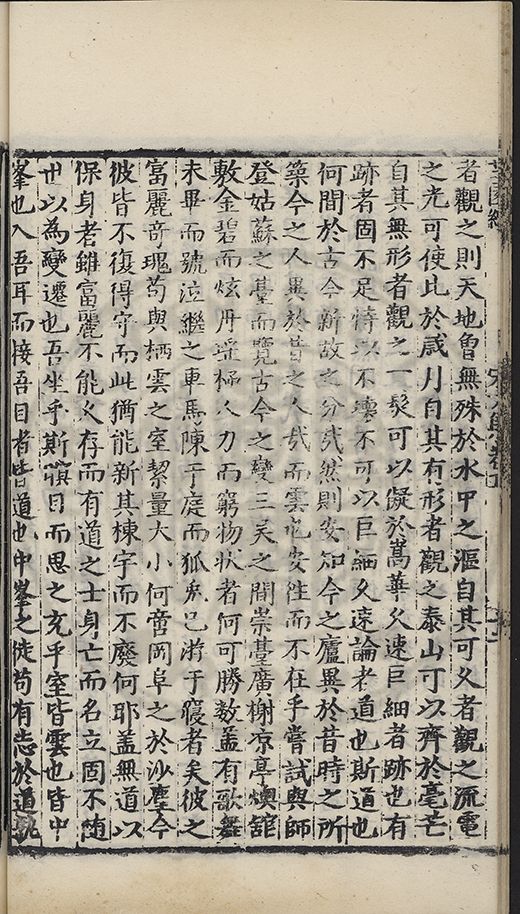 者觀之則天地曾無殊於水中之漚自其可久者觀之流電
之光可使比於歲月自其有形者觀之泰山可以齊於毫芒
自其無形者觀之一髮可以儗於嵩華久速巨細者跡也有
跡者固不足恃以不壞不可以巨細久速論者道也斯道也
何間於古今新故之分哉然則安知今之廬異於昔時之所
築今之人異於昔之人哉而雲也安徃而不在乎嘗試與師
登姑蘇之臺而覽古今之變三吴之間崇臺廣榭凉亭燠舘
敷金碧而炫丹堊極人力而窮物状者何可勝數盖有歌舞
未畢而號泣繼之車馬陳于庭而狐兔已游于寢者矣彼之
富麗奇瑰苟與栖雲之室絜量大小何啻岡阜之於沙塵今
彼皆不復得守而此猶能新其棟宇而不廢何耶盖無道以
保身者雖富麗不能乆存而有道之士身亡而名立固不随
世以為變遷也吾坐乎斯瞑目而思之充乎室皆雲也皆中
峯也入吾耳而接吾目者皆道也中峯之徒苟有志於道